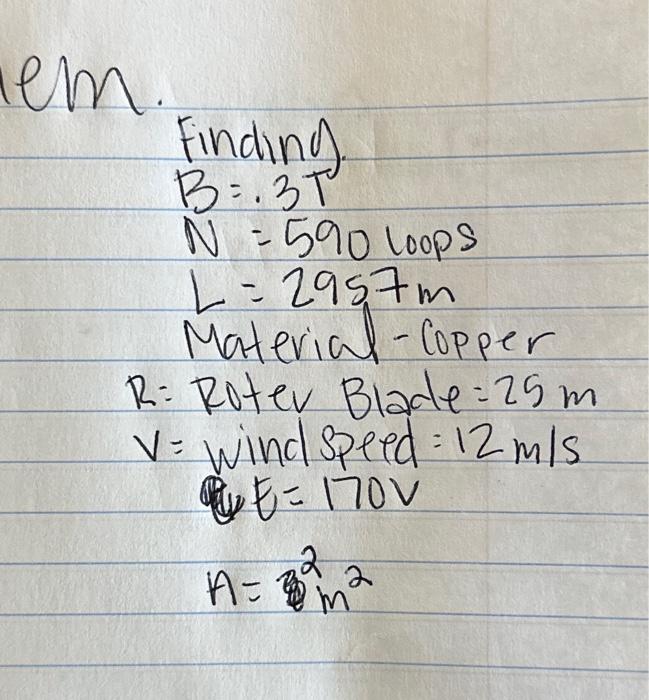 em.
Finding.
B = .3T
N = 590 loops
L = 2957m
Material - Copper
R = Roter Blade = 25 m
V = wind speed = 12 m/s
E = 170V
A = 2 m²